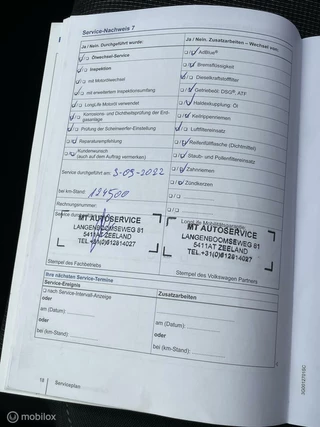 Service-Nachweis 7
Ja / Nein. Durchgeführt wurde:
Ölwechsel-Service
Inspektion
mit Motorölwechsel
mit erweitertem Inspektionsumfang
LongLife Motoröl verwendet
Korrosions- und Dichtheitsprüfung der Erdgasanlage
Prüfung der Scheinwerfer-Einstellung
Reparaturempfehlung:
Kundenwunsch
(auch auf dem Auftrag vermerken)
Service durchgeführt am: 3-05-2022
bei km-Stand: 124500
Rechnungsnummer:
MT AUTOSERVICE
LANGENBOOMSEWEG 81
5411AT ZEELAND
TEL.+31(0)612814027
Stempel des Fachbetriebs
Ja / Nein. Zusatzarbeiten – Wechsel von:
AdBlue®
Bremsflüssigkeit
Dieselkraftstofffilter
Getriebeöl: DSG®, ATF
Haldexkupplung: Öl
Keilrippenriemen
Luftfiltereinsatz
Reifenfüllflasche (Dichtmittel)
Staub- und Pollenfiltereinsatz
Zahnriemen
Zündkerzen
MT AUTOSERVICE
LANGENBOOMSEWEG 81
5411AT ZEELAND
TEL.+31(0)612814027
Stempel des Volkswagen Partners
Ihre nächsten Service-Termine
Service-Ereignis
nach Service-Intervall-Anzeige
oder
am (Datum):
oder
bei (km-Stand):
Zusatzarbeiten
am (Datum):
oder
bei (km-Stand):
18
Serviceplan
mobilox